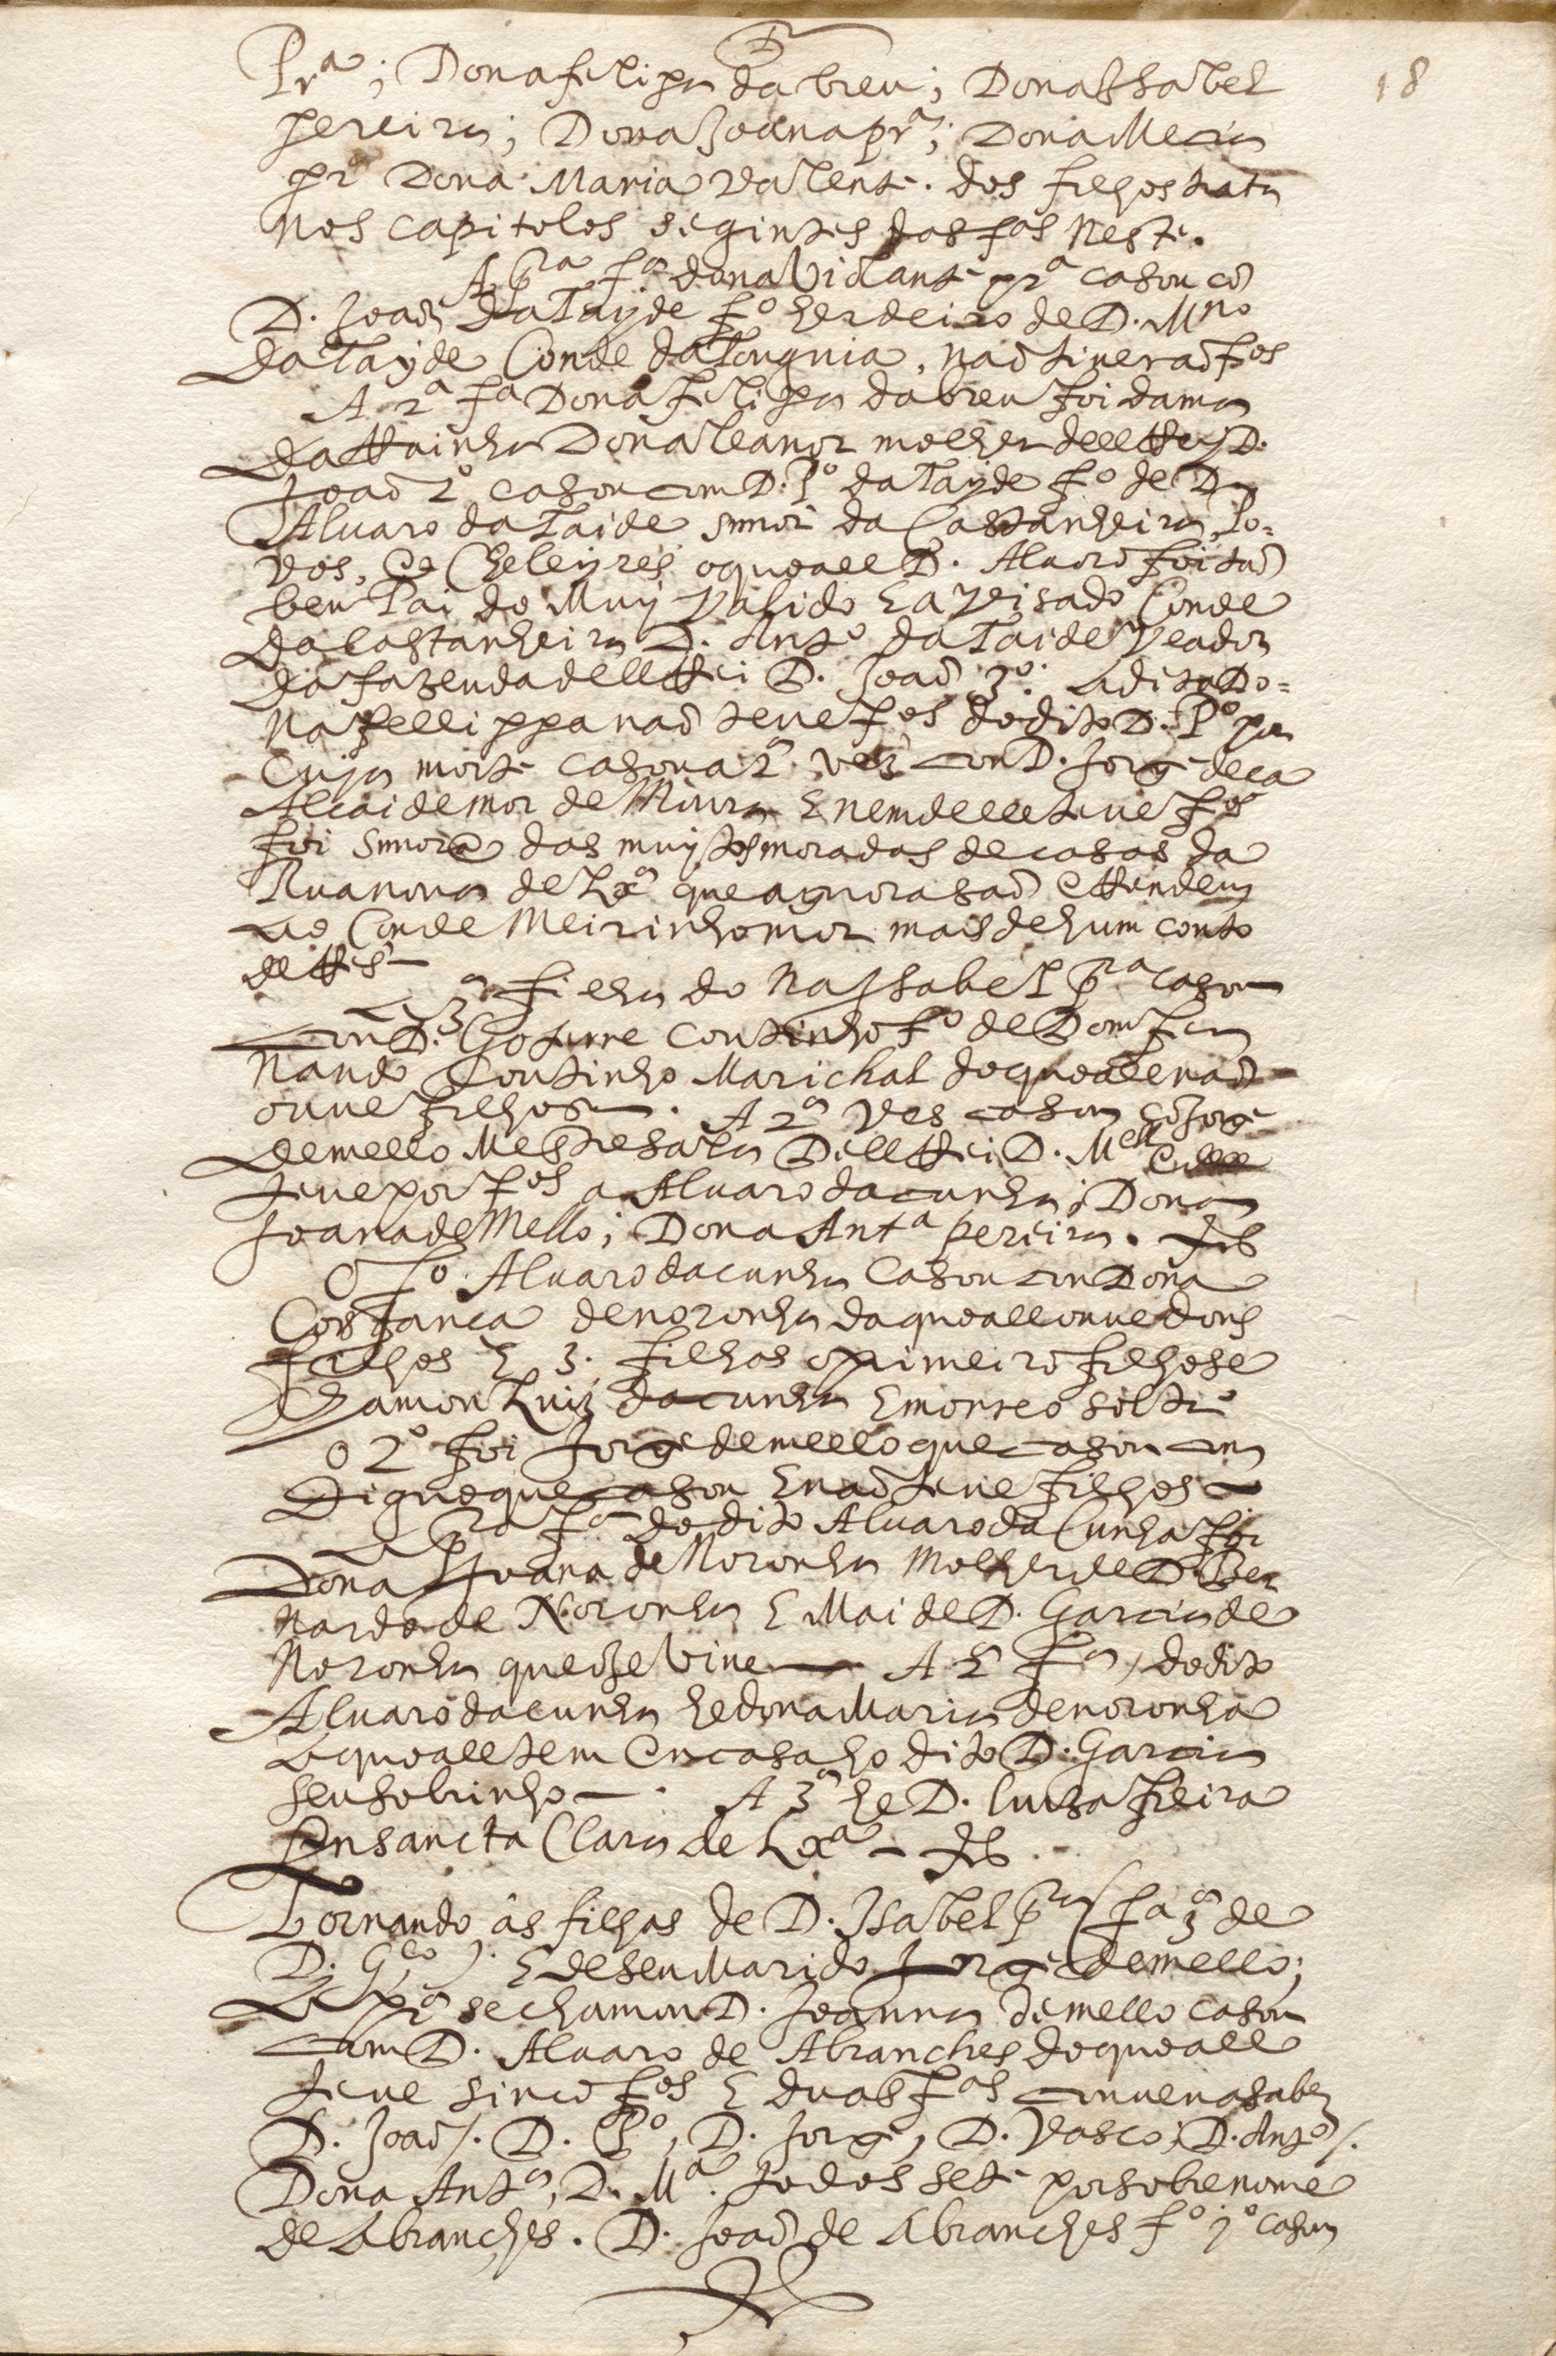 18
Prª; Dona felipa dabreu; Dona Issabel
pereira; Dona Joana prª; Dona Mecia
pr Dona Maria Valente. dos filhos trata
nos capitolos segintes das fªs neste.
A prª fª dona Violante prª casou cõ
D. Joaõ da Tayde fº herdeiro de D. Mno
da Tayde Conde da Touguia, naõ tiueraõ fos
A 2ª fª Dona felipa dabreu foi dama
da Rainha Dona Leanor molher delRey D.
Joaõ 2º casou com D. Pº da Tayde fº de D.
Aluaro da Taide snnor da Castanheira, Po=
vos, e Cheleyres oqueall D. Aluaro foi taõ
ben Pai do Muy valido e avisado Conde
da Castanheira D. Antº da Taide Veador
da fazenda dellRei D. Joaõ 3º. a dita Do=
na fellippa naõ teue fos do dito D. Pº por
cuja morte casou a 2ª vez con D. Jorge deca
Alcaide mor de Moura e nem delle teue fos
foi snnora das muytas moradas de casas da
Rua noua de Lxª que agora saõ e Rendem
ao Conde Meirinho mor mais de hum conto
de Rs
A 3ª filha dona Issabel prª casou
con D. Goterre Coutinho fº de Dom fer
nando Coutinho Marichal do queall naõ
ouue filhos. A 2ª ves casou cõ Jorge
de mello Mestre sala dellRei D. Mell
teue por fos a Aluaro da cunha; Dona
Joana de Mello; Dona Antª pereira.
O fº Aluaro da cunha Casou con Dona
Constanca de noronha da queall ouue dous
filhos e 3. filhas o primeiro filho se
chamou Luiz da cunha e morreo soltrº
o 2º foi Jorge de mello que casou com
Digo que casou e naõ teue filhos
A prª fª do dito Aluaro da Cunha foi
Dona Joana de Noronha Molher de D. Ber
nardo de Noronha e Mai de D. Garcia de
Noronha que oje viue A 2ª fª do dito
Aluaro da cunha he dona Maria de noronha
aqueall tem en casa ho dito D. Garcia
seu sobrinho. A 3ª he D. luisa freira
En sancta Clara de Lxª
Tornando âs filhas de D. Isabel prª (fª 3ª de
D. Glo). E de seu Marido Jorge de mello;
A prª se chamou D. Joanna de mello casou
com D. Aluaro de Abranches do queall
teue sinco fos e duas fªs conuen a saber
D. Joaõ /. D. Pº, D. Jorge, D. Vasco, D. Antº /.
Dona Antª, D. Mª. todos sete por sobrenome
de Abranches. D. Joaõ de Abranches fº 1º casou